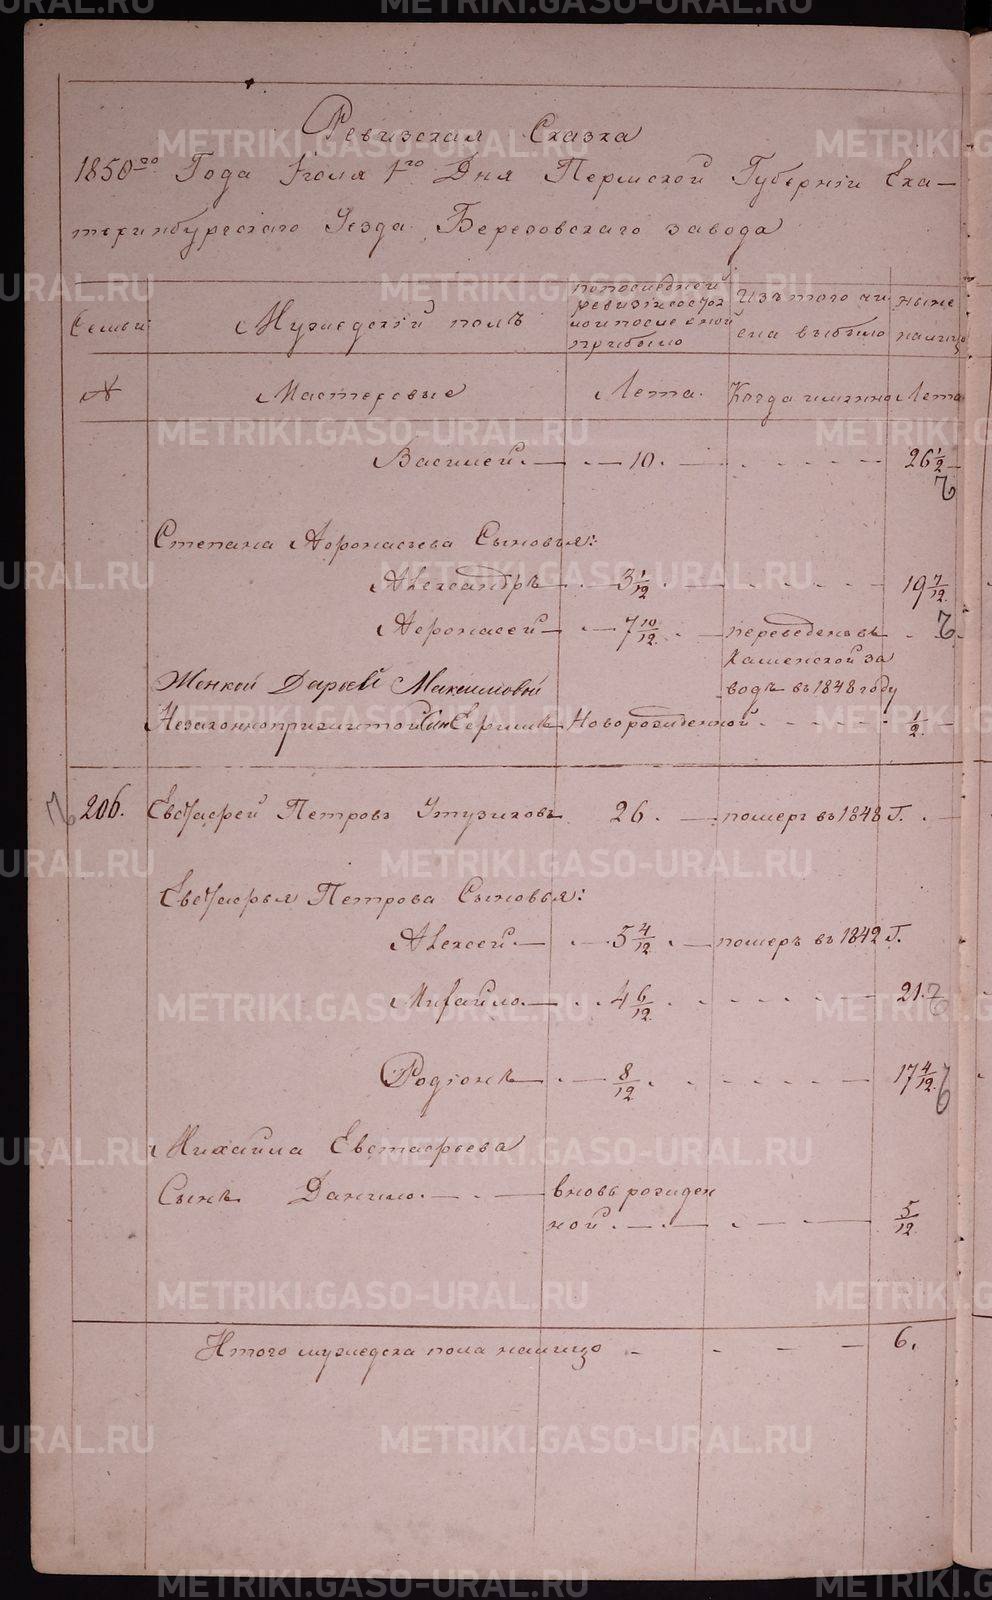 Ревизская Сказка
1850го Года Іюля 1го Дня Пермской Губерніи Ека-
теринбургскаго Уезда Березовскаго завода
Семьи
Мужедскій полъ
по последней ревизіи состоя ло и после оной прибыло
Изъ того чи сла выбыло
ныне налицо
№ Мастеровые Лета. Когда имянно Лета
Василей. — 10. — 26 1/2
Степана Афонасьева Сыновья:
Александръ 3 1/12 19 7/12.
Афонасей — 7 10/12. — переведенъ въ
Каменской за
Женкой Дарьей Максимовой водъ въ 1848 году
Незаконноприжитой Сын Новорожденной 1/2.
206. Евстафей Петровъ 26. — померъ въ 1848 Г.
Евстафья Петрова Сыновья:
Алексей. — 5 4/12. — померъ въ 1842 Г.
Михайло. — 4 6/12. 21.
Родіонъ — 8/12. 17 4/12.
Михаила Евстафьева
Сынъ Данило. — вновь рожден
ной. — 5/12.
Итого мужедска пола налицо 6.
METRIKI.GASO-URAL.RU